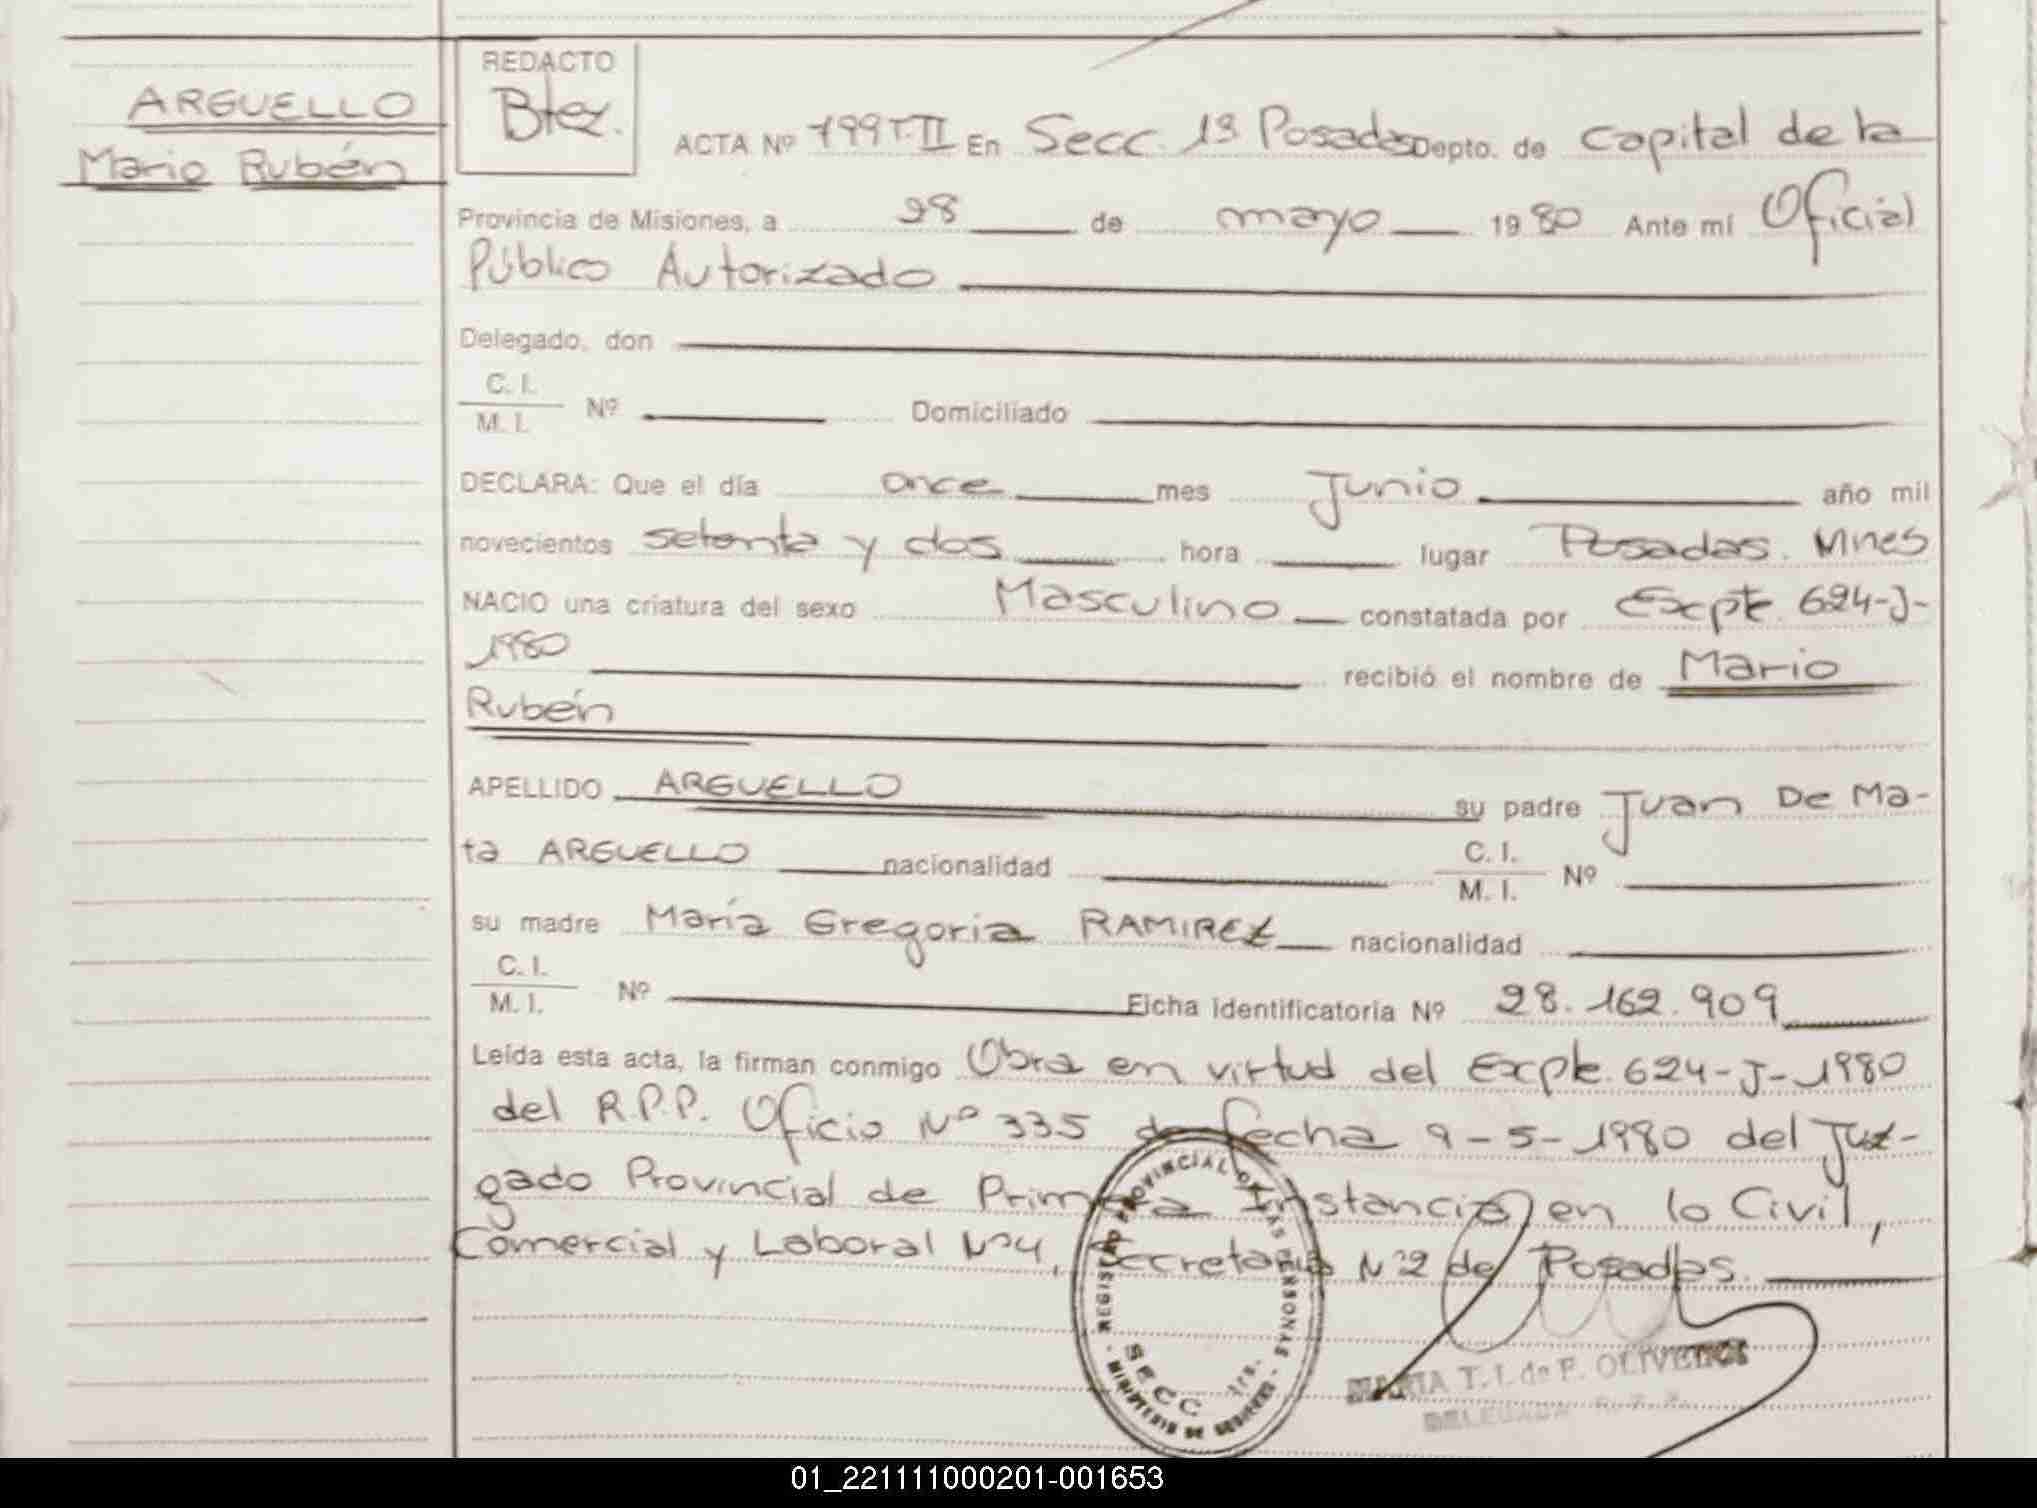 ARGUELLO
Mario Rubén
REDACTO
Btez.
ACTA Nº 799 T.II En Secc. 1ª Posadas Depto. de Capital de la
Provincia de Misiones, a 28 de mayo 1980 Ante mí Oficial
Público Autorizado
Delegado, don
C. I.
M. I. Nº Domiciliado
DECLARA: Que el día once mes Junio año mil
novecientos setenta y dos hora lugar Posadas. Mnes
NACIO una criatura del sexo Masculino constatada por Expte. 624-J-
1980 recibió el nombre de Mario
Rubén
APELLIDO ARGUELLO su padre Juan De Ma-
ta ARGUELLO nacionalidad C. I. M. I. Nº
su madre María Gregoria RAMIREZ nacionalidad
C. I.
M. I. Nº Ficha identificatoria Nº 28.162.909
Leída esta acta, la firman conmigo Obra en virtud del Expte. 624-J-1980
del R.P.P. Oficio Nº 335 de fecha 9-5-1980 del Juz-
gado Provincial de Primera Instancia en lo Civil,
Comercial y Laboral Nº4, Secretaría Nº2 de Posadas.
REGISTRO PROVINCIAL DE LAS PERSONAS
SECC 1ra.
MINISTERIO DE GOBIERNO
MARIA T. I. de F. OLIVETTI
DELEGADA
01_221111000201-001653